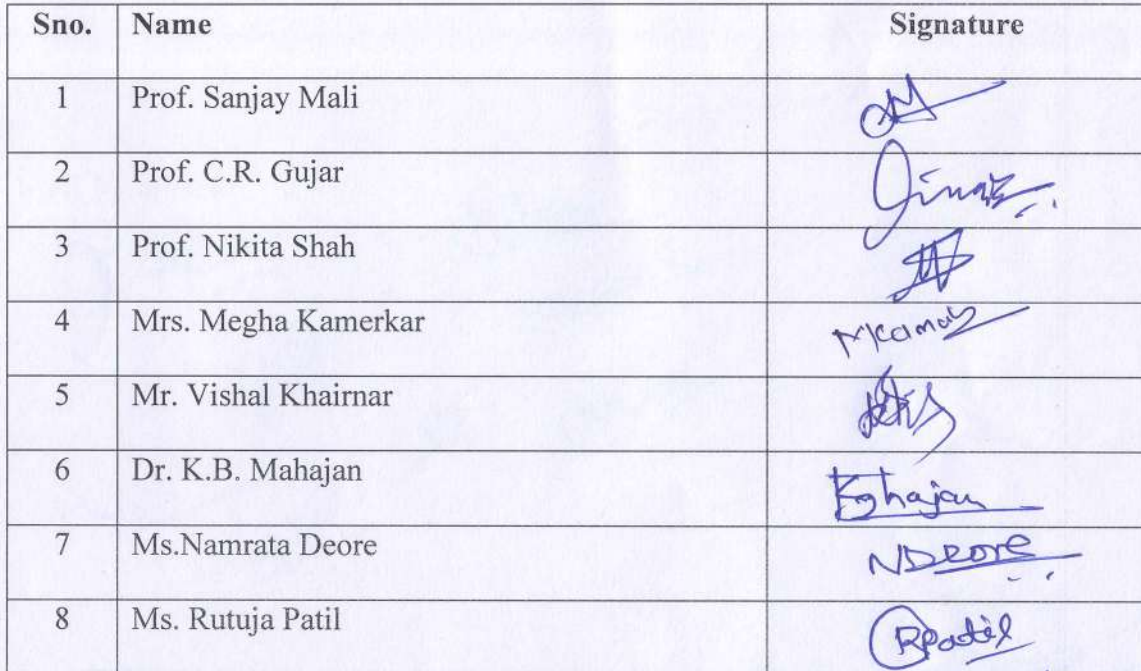 Sno. Name Signature
1 Prof. Sanjay Mali
2 Prof. C.R. Gujar
3 Prof. Nikita Shah
4 Mrs. Megha Kamerkar
5 Mr. Vishal Khairnar
6 Dr. K.B. Mahajan
7 Ms.Namrata Deore NDeore
8 Ms. Rutuja Patil RPatil